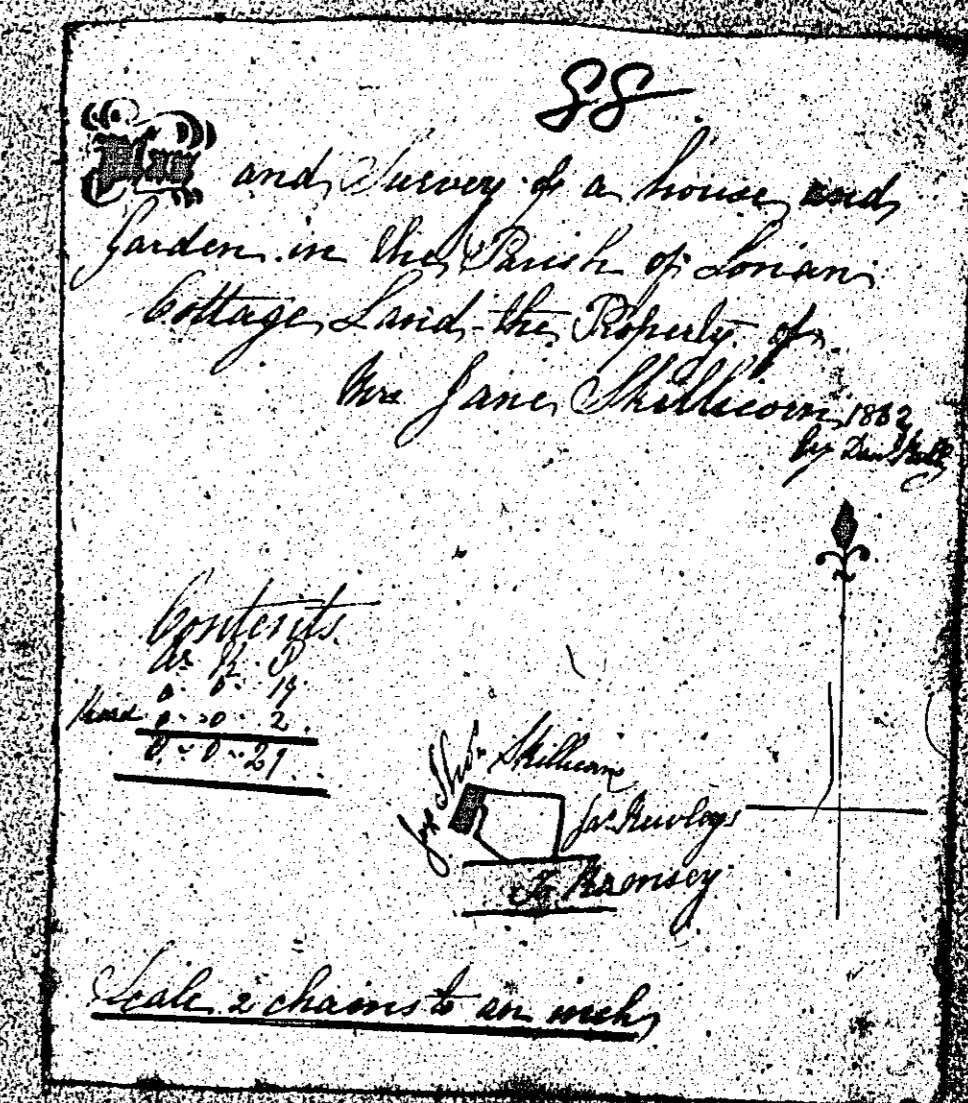 Plan and Survey of a house and
Garden in the Parish of Lonan
Cottage Land the Property of
Mrs Jane Skillicorn 1832
by Danl
Contents
A R P
0 0 19
Road 0 0 2
0 0 21
Skillicorn
Jas Kewleys
To Ramsey
Scale 2 chains to an inch